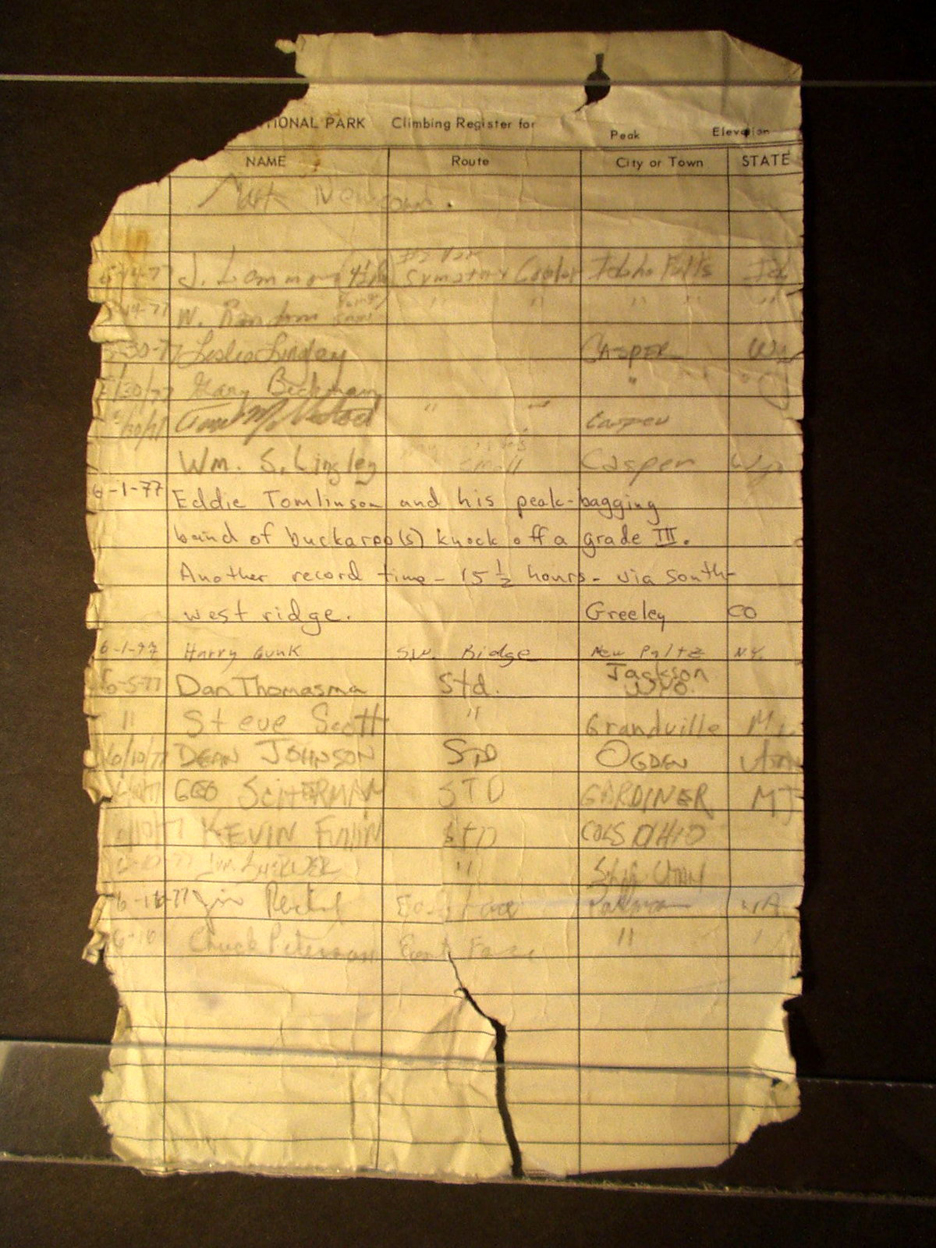 TIONAL PARK Climbing Register for Peak Elevation
NAME Route City or Town STATE
Mark Newcomb.
6-14-77 J. Lemmon Symmetry Couloir Idaho Falls Id
-14-77 W. " " " " "
5-30-77 Leslie Lindsay CASPER Wy
5/30/77 Gary Beckman "
" Casper
Wm. S. Lingley small Casper Wy
6-1-77 Eddie Tomlinson and his peak-bagging
band of buckaroo(s) knock off a grade III.
Another record time - 15 ½ hours - via south-
west ridge. Greeley CO
6-1-77 Harry Gunk SW. Ridge New Paltz N.Y.
6-5-77 Dan Thomasma Std. Jackson Wyo.
" Steve Scott " Grandville Mi
6/10/77 DEAN JOHNSON STD OGDEN Utah
GEO SCHERMAN STD GARDINER MT
6/10/77 KEVIN STD COLS OHIO
6-10-77 "
6-16-77 Jim East Face Pullman WA
6-16 Chuck Peterson East Face " "